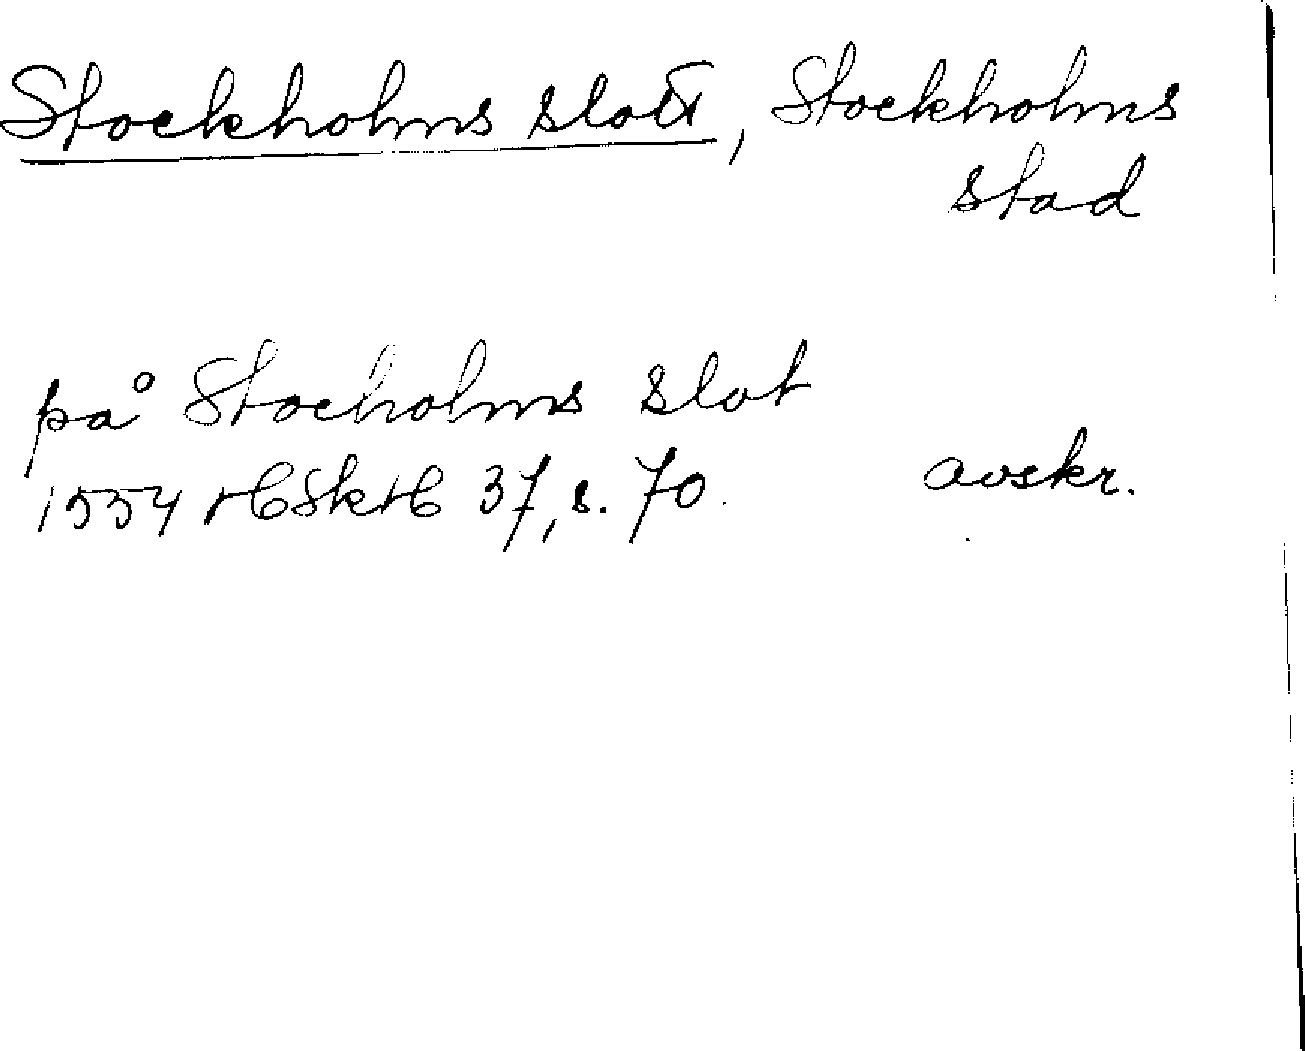 Stockholms slott, Stockholms
stad
på Stocholms slot
1554 HSkH 37, s. 70. avskr.